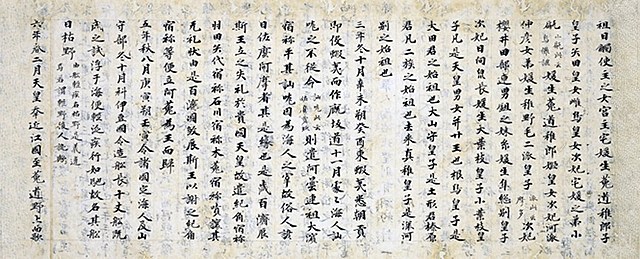 祖日觸使主之女宮主宅媛生菟道稚郎子
皇子矢田皇女雌鳥皇女次妃宅媛之弟小
甂小甂此云烏儺謎媛生菟道稚郎姬皇女次妃河派
仲彦女弟媛生稚野毛二派皇子派此云摩多次妃
櫻井田部連男鉏之妹糸媛生隼總別皇子
次妃日向泉長媛生大葉枝皇子小葉枝皇
子凡是天皇男女并廿王也根鳥皇子是
大田君之始祖也大山守皇子是土形君榛原
君凡二族之始祖也去来真稚皇子是深河
別之始祖也
三年冬十月辛未朔癸酉東蝦夷悉朝貢
即役蝦夷而作厩坂道十一月處々海人訕
哤之不從命訕哤此云佐麼賣玖則遣阿曇連祖大濱
宿祢平其訕哤因為海人之宰故俗人諺
曰佐麼阿摩者其是緣也是歲百濟辰
斯王立之失礼於貴國天皇故遣紀角宿祢
羽田矢代宿祢石川宿祢木菟宿祢嘖讓其
无礼狀由是百濟國殺辰斯王以謝之紀角
宿祢等便立阿花為王而歸
五年秋八月庚寅朔壬寅令諸國定海人及山
守部冬十月科伊豆國令造船長十丈船既
成之試浮于海便輕泛疾行如馳故名其船
曰枯野由船輕疾名枯野是義違焉若謂輕野後人訛歟
六年春二月天皇幸近江國至菟道野上而歌